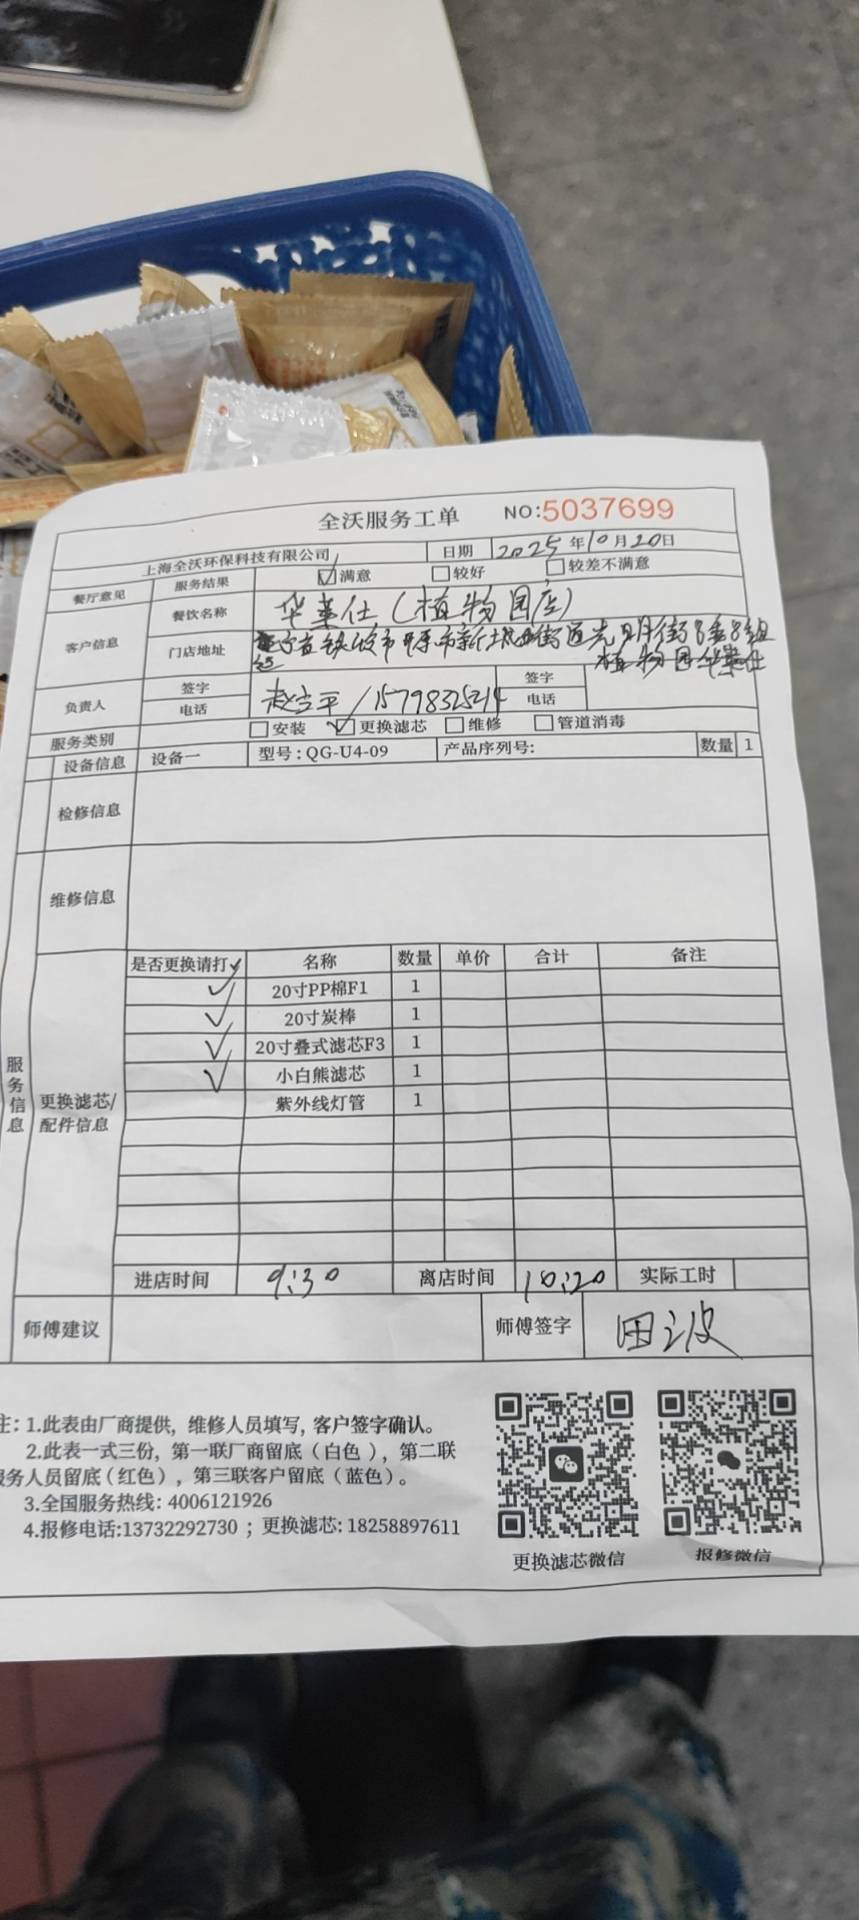 全沃服务工单 NO:5037699
上海全沃环保科技有限公司 日期 2025年10月20日
餐厅意见 服务结果 ☑满意 □较好 □较差不满意
客户信息 餐饮名称 华莱仕(植物园店)
门店地址 新城街道光明街8委8组
植物园华莱仕
负责人 签字 电话 15798325214 签字 电话
服务类别 □安装 ☑更换滤芯 □维修 □管道消毒
设备信息 设备一 型号:QG-U4-09 产品序列号: 数量 1
检修信息
维修信息
服务信息
更换滤芯/配件信息
是否更换请打✓ 名称 数量 单价 合计 备注
✓ 20寸PP棉F1 1
✓ 20寸炭棒 1
✓ 20寸叠式滤芯F3 1
✓ 小白熊滤芯 1
紫外线灯管 1
进店时间 9:30 离店时间 10:20 实际工时
师傅建议 师傅签字
注:1.此表由厂商提供,维修人员填写,客户签字确认。
2.此表一式三份,第一联厂商留底(白色),第二联
服务人员留底(红色),第三联客户留底(蓝色)。
3.全国服务热线:4006121926
4.报修电话:13732292730;更换滤芯:18258897611
更换滤芯微信 报修微信